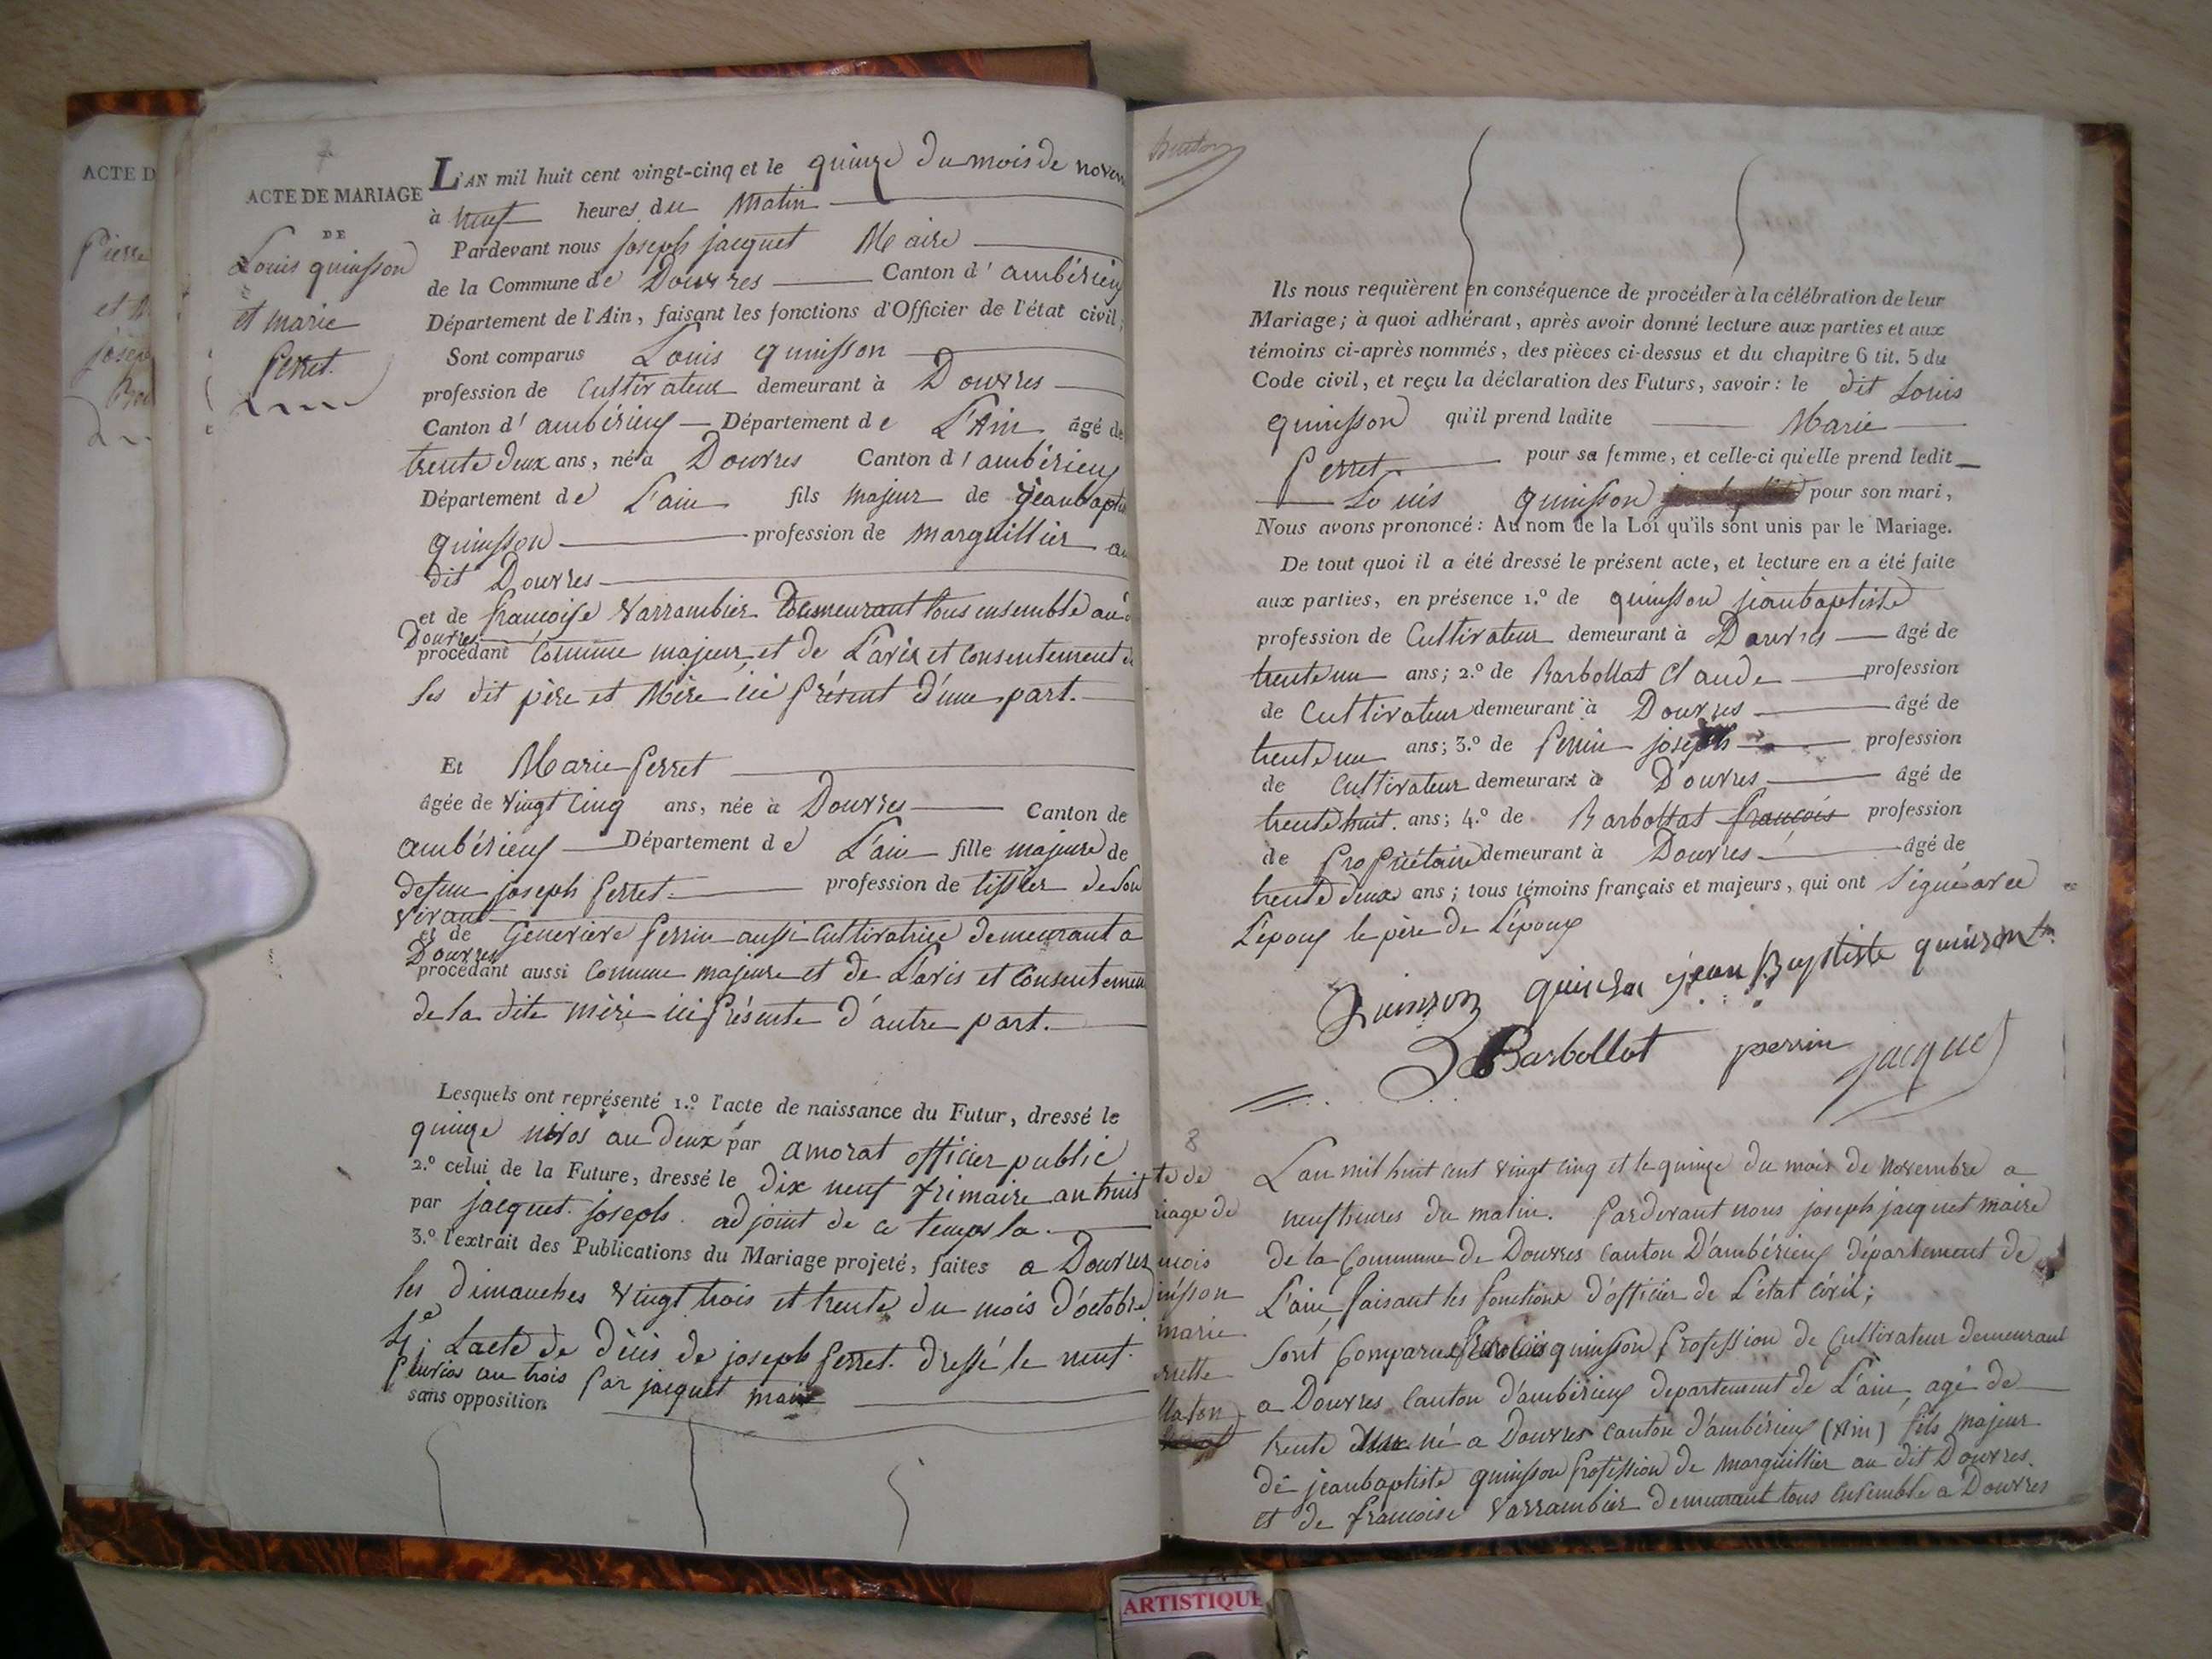 ACTE D
Pierre
et
josep
ACTE DE MARIAGE
DE
Louis quinsson
et marie
Perret.
L'AN mil huit cent vingt-cinq et le quinze du mois de novem
à neuf heures du Matin
Pardevant nous joseph jacquet Maire
de la Commune de Douvres Canton d'ambérieux
Département de l'Ain, faisant les fonctions d'Officier de l'état civil;
Sont comparus Louis quinsson
profession de Cultivateur demeurant à Douvres
Canton d'ambérieux Département de L'Ain âgé de
trente deux ans, né à Douvres Canton d'ambérieux
Département de L'ain fils majeur de jeanbaptis
quinsson profession de marguillier au
dit Douvres
et de francoise Varrambier demeurant tous ensemble au d
Douvres
procédant Comme majeur et de L'avis et consentement de
ses dit père et Mère ici présent d'une part.
Et Marie Perret
âgée de vingt Cinq ans, née à Douvres Canton de
ambérieux Département de L'ain fille majeure de
defun joseph Perret profession de tissier de son
vivant
et de Genevieve Perrin aussi Cultivatrice demeurant a
Douvres
procédant aussi Comme majeure et de L'avis et Consentemen
de la dite mère ici présente d'autre part.
Lesquels ont représenté 1.º l'acte de naissance du Futur, dressé le
quinze nivos an deux par amorat officier public
2.º celui de la Future, dressé le dix neuf frimaire an huit
par jacquet joseph adjoint de ce temps la
3.º l'extrait des Publications du Mariage projeté, faites a Douvres
les dimanches vingt trois et trente du mois d'octobre
4º. L'acte de déces de joseph Perret. dressé le neuf
pluvios an trois par jacquet maire
sans opposition
Ils nous requièrent en conséquence de procéder à la célébration de leur
Mariage; à quoi adhérant, après avoir donné lecture aux parties et aux
témoins ci-après nommés, des pièces ci-dessus et du chapitre 6 tit. 5 du
Code civil, et reçu la déclaration des Futurs, savoir: le dit Louis
quinsson qu'il prend ladite Marie
Perret pour sa femme, et celle-ci qu'elle prend ledit
Louis quinsson pour son mari,
Nous avons prononcé: Au nom de la Loi qu'ils sont unis par le Mariage.
De tout quoi il a été dressé le présent acte, et lecture en a été faite
aux parties, en présence 1.º de quinsson jeanbaptiste
profession de Cultivateur demeurant à Douvres âgé de
trente un ans; 2.º de Barbollat Claude profession
de Cultivateur demeurant à Douvres âgé de
trente un ans; 3.º de Perrin joseph profession
de Cultivateur demeurant à Douvres âgé de
trente huit ans; 4.º de Barbollat françois profession
de Propriétaire demeurant à Douvres âgé de
trente deux ans; tous témoins français et majeurs, qui ont signé avec
L'epoux le père de L'epoux
quinson jean Baptiste quinson
Barbollat perrin jacquet
8
te de
iage de
inçois
insson
marie
llaton
L'an mil huit cent vingt cinq et le quinze du mois de Novembre a
neuf heures du matin. Pardevant nous joseph jacquet maire
de la Commune de Douvres canton D'ambérieux département de
L'ain, faisant les fonctions d'officier de L'état civil;
Sont Comparus quinsson Profession de Cultivateur demeurant
a Douvres canton d'ambérieux departement de L'ain, agé de
trente né a Douvres canton d'ambérieux (Ain) fils majeur
de jeanbaptiste quinsson Profession de Marguillier au dit Douvres.
et de francoise Varrambier demeurant tous ensemble a Douvres
ARTISTIQUE